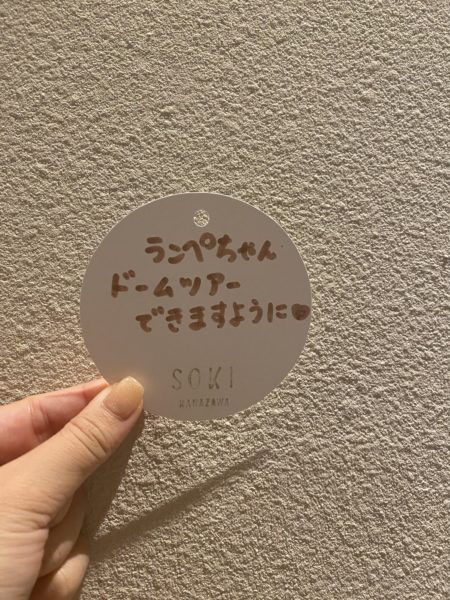 ランペちゃん
ドームツアー
できますように♥
SOKI
KANAZAWA